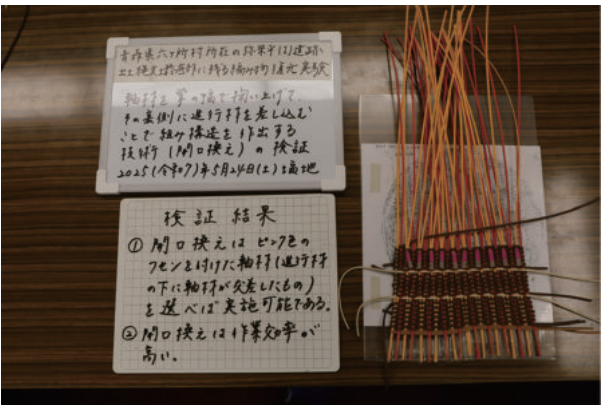 青森県六ヶ所村所在の弥栄平(1)遺跡
出土縄文土器底部に残る編み物復元実験
軸材を掌の端で掬い上げて、
その裏側に進行材を差し込む
ことで組み構造を作出する
技術(開口換え)の検証
2025(令和7)年5月24日(土)
検証結果
① 開口換えはピンク色の
フセンを付けた軸材(進行材
の下に軸材が交差したもの)
を選べば実施可能である。
② 開口換えは作業効率が
高い。